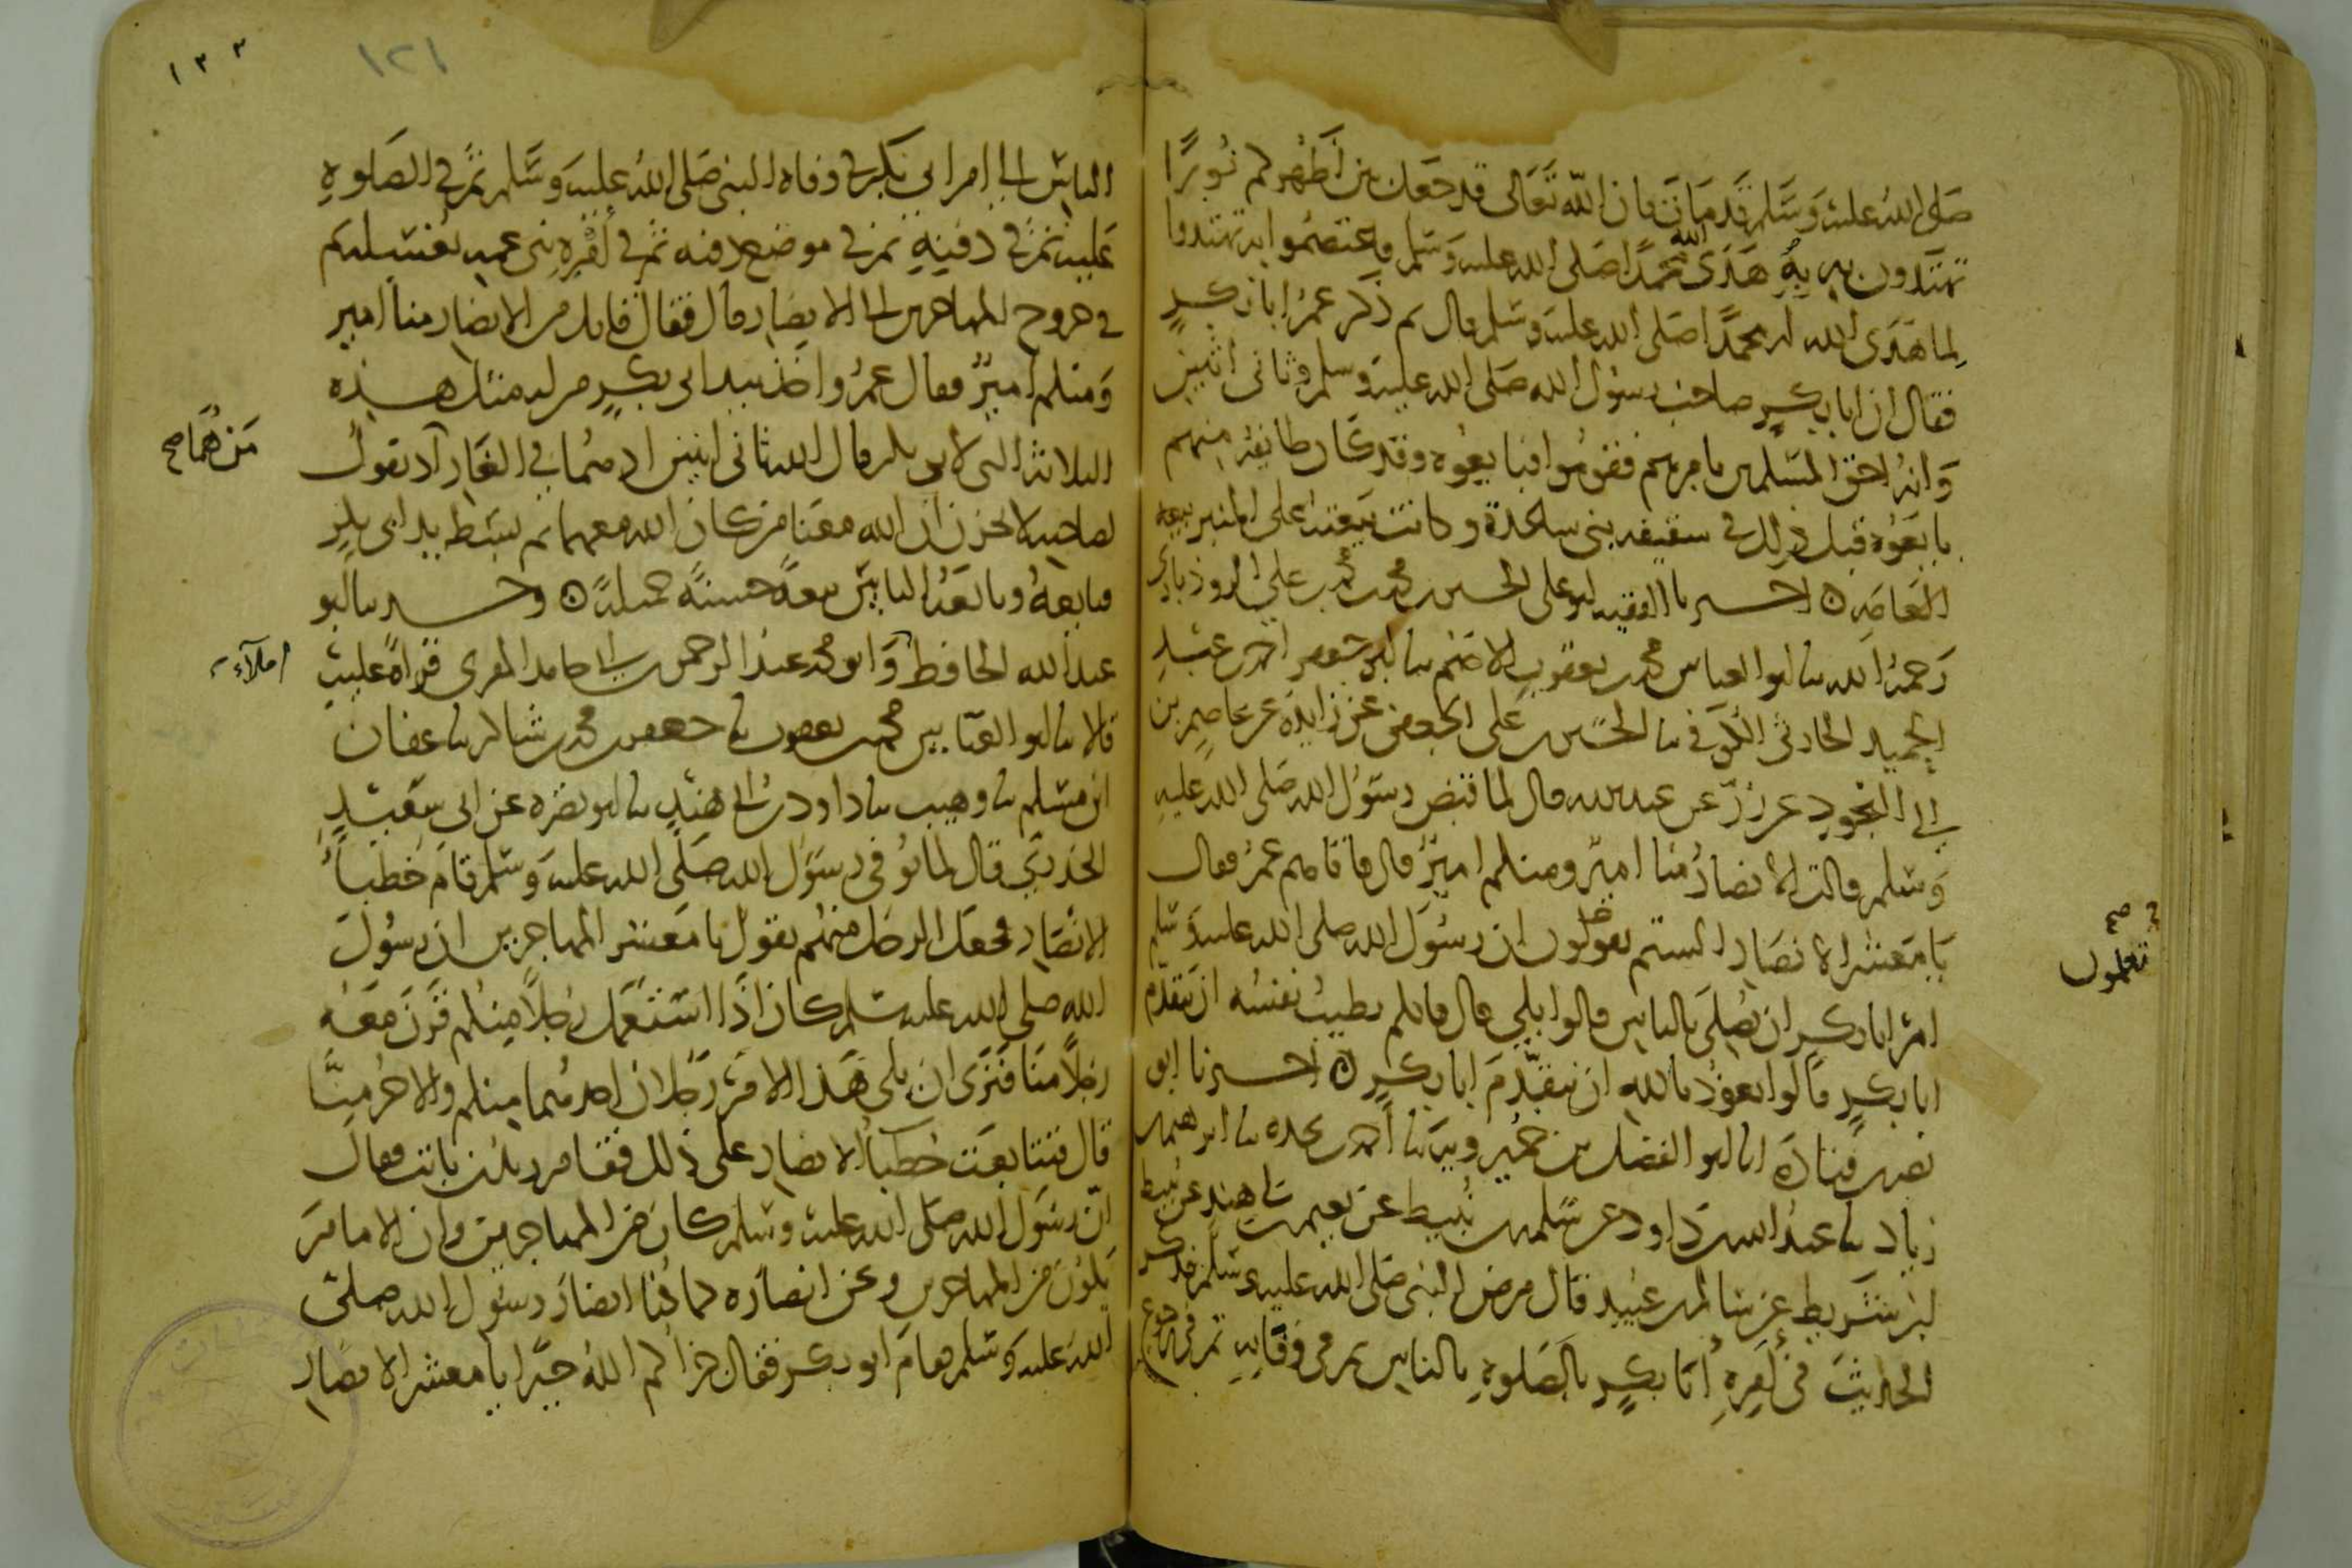 صلى الله عليه وسلم قد مات فان الله تعالى قد جعل بين اظهركم نورا
تهتدون به به هدى الله محمدا صلى الله عليه وسلم فاعتصموا به تهتدوا
لما هدى الله له محمدا صلى الله عليه وسلم قال ثم ذكر عمر ابا بكر
فقال ان ابا بكر صاحب رسول الله صلى الله عليه وسلم وثاني اثنين
وانه احق المسلمين بامرهم فقوموا فبايعوه وقد كان طايفة منهم
بايعوه قبل ذلك في سقيفه بني ساعدة وكانت بيعته على المنبر بيعة
العامة اخبرنا الفقيه ابو علي الحسين بن محمد بن محمد بن علي الروذباري
رحمه الله نا ابو العباس محمد بن يعقوب الاصم نا ابو جعفر احمد بن عبد
الحميد الحارثي الكوفي نا الحسين بن علي الجعفي عن زايدة عن عاصم بن
ابي النجود عن زر عن عبد الله قال لما قبض رسول الله صلى الله عليه
وسلم قالت الانصار منا امير ومنكم امير قال فاتاهم عمر فقال
يا معشر الانصار الستم تعلمون ان رسول الله صلى الله عليه وسلم
تعلمون صح
امر ابا بكر ان يصلي بالناس قالوا بلى قال فايكم يطيب نفسه ان يتقدم
ابا بكر قالوا نعوذ بالله ان نتقدم ابا بكر اخبرنا ابو
نصر بن قتادة انا ابو الفضل بن خميرويه نا احمد بن نجده نا ابرهيم بن
زياد نا عبد الله بن داود عن سلمه بن نبيط عن نعيم بن ابي هند عن نبيط
ابن شريط عن سالم بن عبيد قال مرض النبي صلى الله عليه وسلم فذكر
الحديث في امره ابا بكر بالصلوة بالناس ثم في وفاته ثم في رجوع
١٢١
١٣٣
الناس الى امر ابي بكر في وفاه النبي صلى الله عليه وسلم ثم في الصلوة
عليه ثم في دفنه ثم في موضع دفنه ثم في امره بني عمه بغسله ثم
في خروج المهاجرين الى الانصار قال فقال قايل من الانصار منا امير
ومنكم امير فقال عمر واخذ بيد ابي بكر من له مثل هذه
الثلاثة التي لابي بكر قال الله ثاني اثنين اذ هما في الغار اذ يقول
من هما صح
لصاحبه لا تحزن ان الله معنا من كان الله معهما ثم بسط يد ابي بكر
فبايعه وبايعه الناس بيعة حسنة جميلة وحدثنا ابو
عبد الله الحافظ وابو محمد عبد الرحمن بن ابي حامد المقري قراة عليه
املاء
قالا نا ابو العباس محمد بن يعقوب نا جعفر بن محمد بن شاكر نا عفان
ابن مسلم نا وهيب نا داود بن ابي هند نا ابو نضره عن ابي سعيد
الخدري قال لما توفي رسول الله صلى الله عليه وسلم قام خطباء
الانصار فجعل الرجل منهم يقول يا معشر المهاجرين ان رسول
الله صلى الله عليه وسلم كان اذا استعمل رجلا منكم قرن معه
رجلا منا فنرى ان يلي هذا الامر رجلان احدهما منكم والاخر منا
قال فتتابعت خطباء الانصار على ذلك فقام زيد بن ثابت فقال
ان رسول الله صلى الله عليه وسلم كان من المهاجرين وان الامام
يكون من المهاجرين ونحن انصاره كما كنا انصار رسول الله صلى
الله عليه وسلم فقام ابو بكر فقال جزاكم الله خيرا يا معشر الانصار